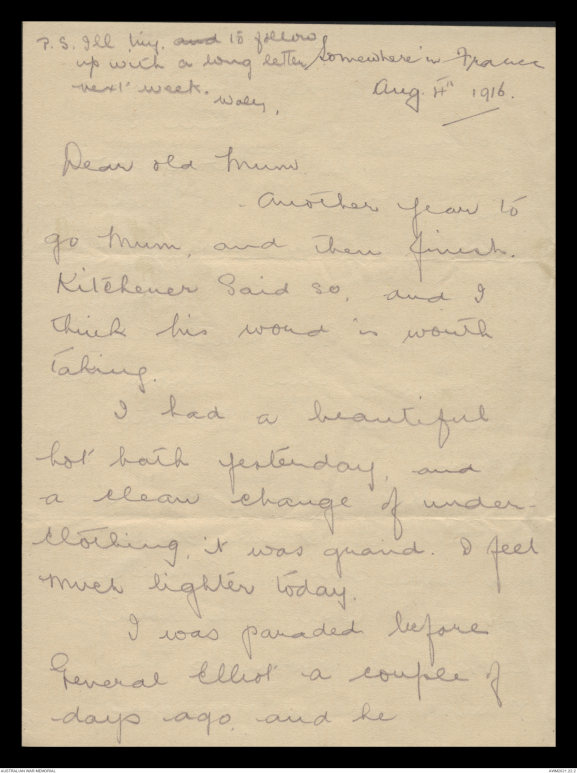 P.S. Ill try and to follow
up with a long letter
next week.
Wally.
Somewhere in France
Aug 4th 1916.
Dear old Mum
Another year to
go Mum, and then finish.
Kitchener Said so, and I
think his word is worth
taking.
I had a beautiful
hot bath yesterday, and
a clean change of under-
clothing, it was grand. I feel
much lighter today.
I was paraded before
General Elliot a couple of
days ago, and he
AUSTRALIAN WAR MEMORIAL